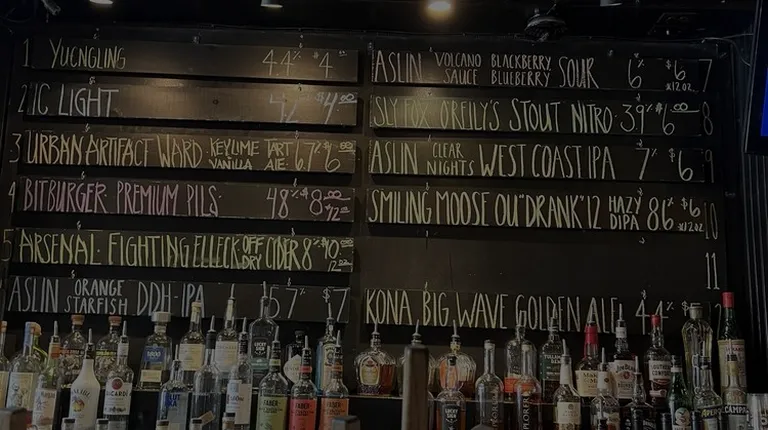 1 YUENGLING 4.4% $4.00
2 IC LIGHT 4.2 $4.00
3 URBAN ARTIFACT WARD. KEYLIME TART 6.7% $6.00
VANILLA ALE.
4 BITBURGER PREMIUM PILS. 4.8% $8.00
5 ARSENAL. FIGHTING ELLECK OFF CIDER 8% $10.00
DRY
ASLIN ORANGE DDH-IPA 5.7% $7
STARFISH
ASLIN VOLCANO BLACKBERRY SOUR 6% $6 7
SAUCE BLUEBERRY X12OZ
SLY FOX O'REILY'S STOUT NITRO. 3.9% $6.00 8
ASLIN CLEAR WEST COAST IPA 7% $6 9
NIGHTS
SMILING MOOSE OU "DRANK" 12 HAZY 8.6% $6 10
DIPA X12OZ
11
KONA. BIG WAVE GOLDEN ALE 4.4%
BACARDI
APEROL
CAMPA